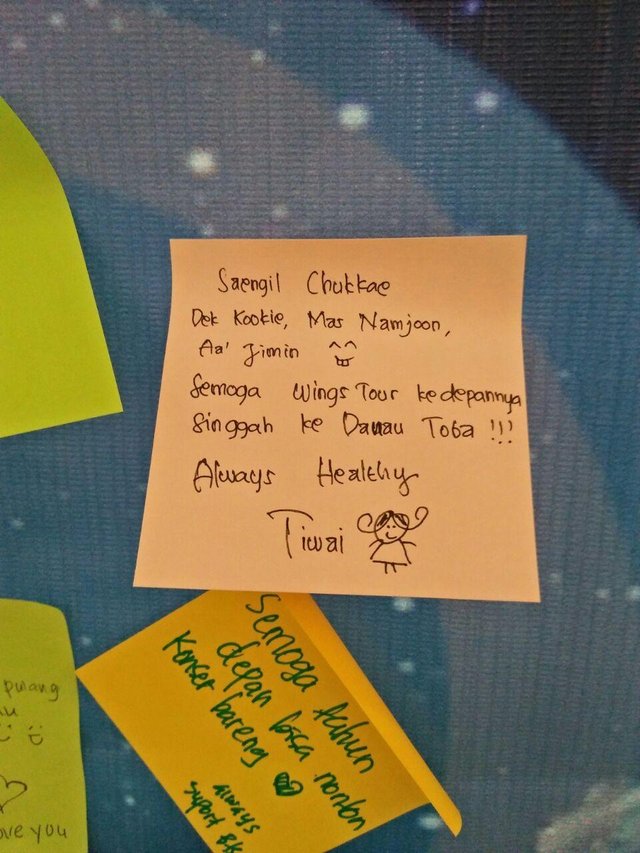 Saengil Chukkae
Dek Kookie, Mas Namjoon,
Aa' Jimin
Semoga Wings Tour kedepannya
Singgah ke Danau Toba !!!
Always Healthy
Tiwai
Semoga tahun
depan bisa nonton
Konser bareng
always
Suport
pulang
love you